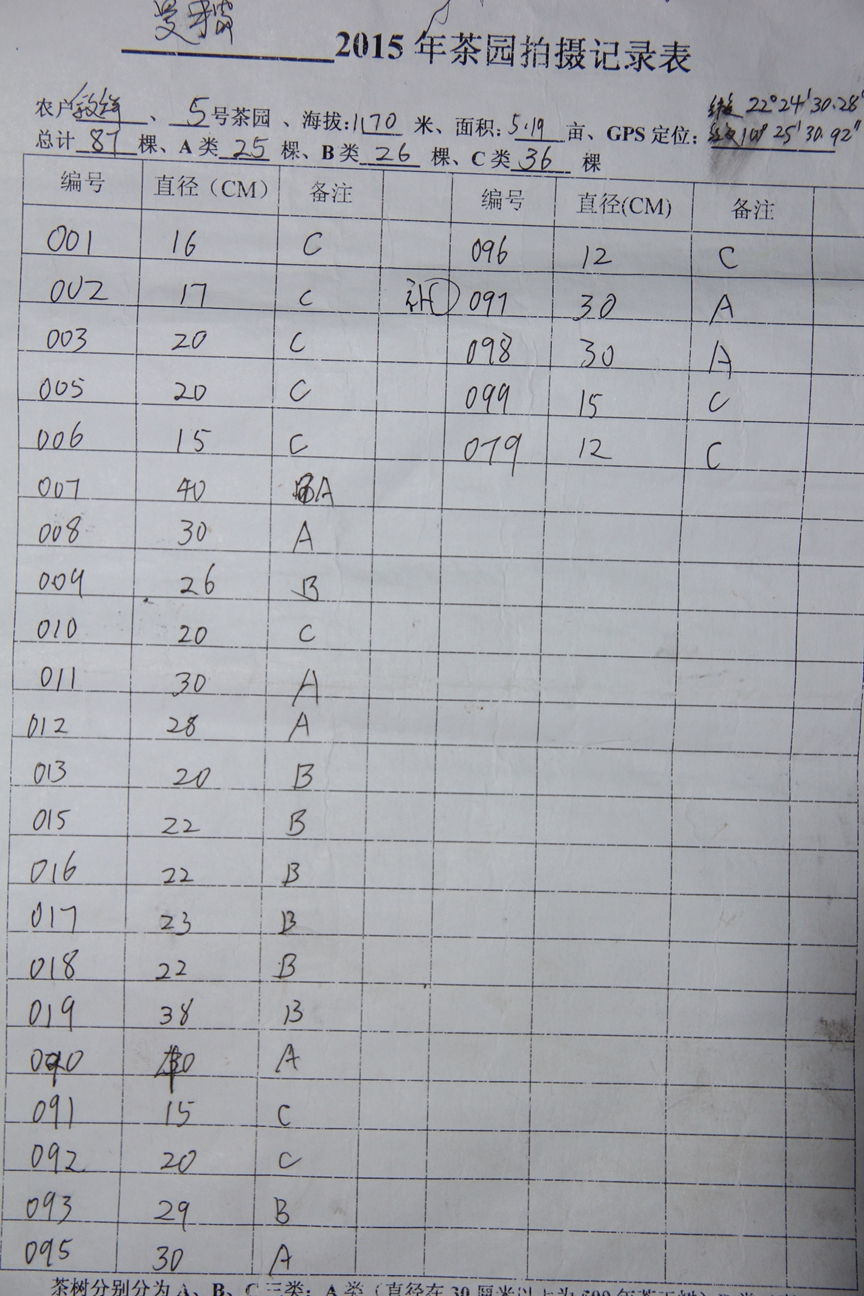 2015 年茶园拍摄记录表
农户 、 5 号茶园 、海拔: 1170 米、面积: 5.19 亩、GPS 定位: 22°24′30.28″
总计 87 棵、A 类 25 棵、B 类 26 棵、C 类 36 棵 25′ 30.92″
编号 直径（CM） 备注 编号 直径(CM) 备注
001 16 C 096 12 C
002 17 C 补 097 30 A
003 20 C 098 30 A
005 20 C 099 15 C
006 15 C 079 12 C
007 40 A
008 30 A
009 26 B
010 20 C
011 30 A
012 28 A
013 20 B
015 22 B
016 22 B
017 23 B
018 22 B
019 38 B
090 30 A
091 15 C
092 20 C
093 29 B
095 30 A
茶树分别分为 A、B、C 三类：A 类（直径在 30 厘米以上为